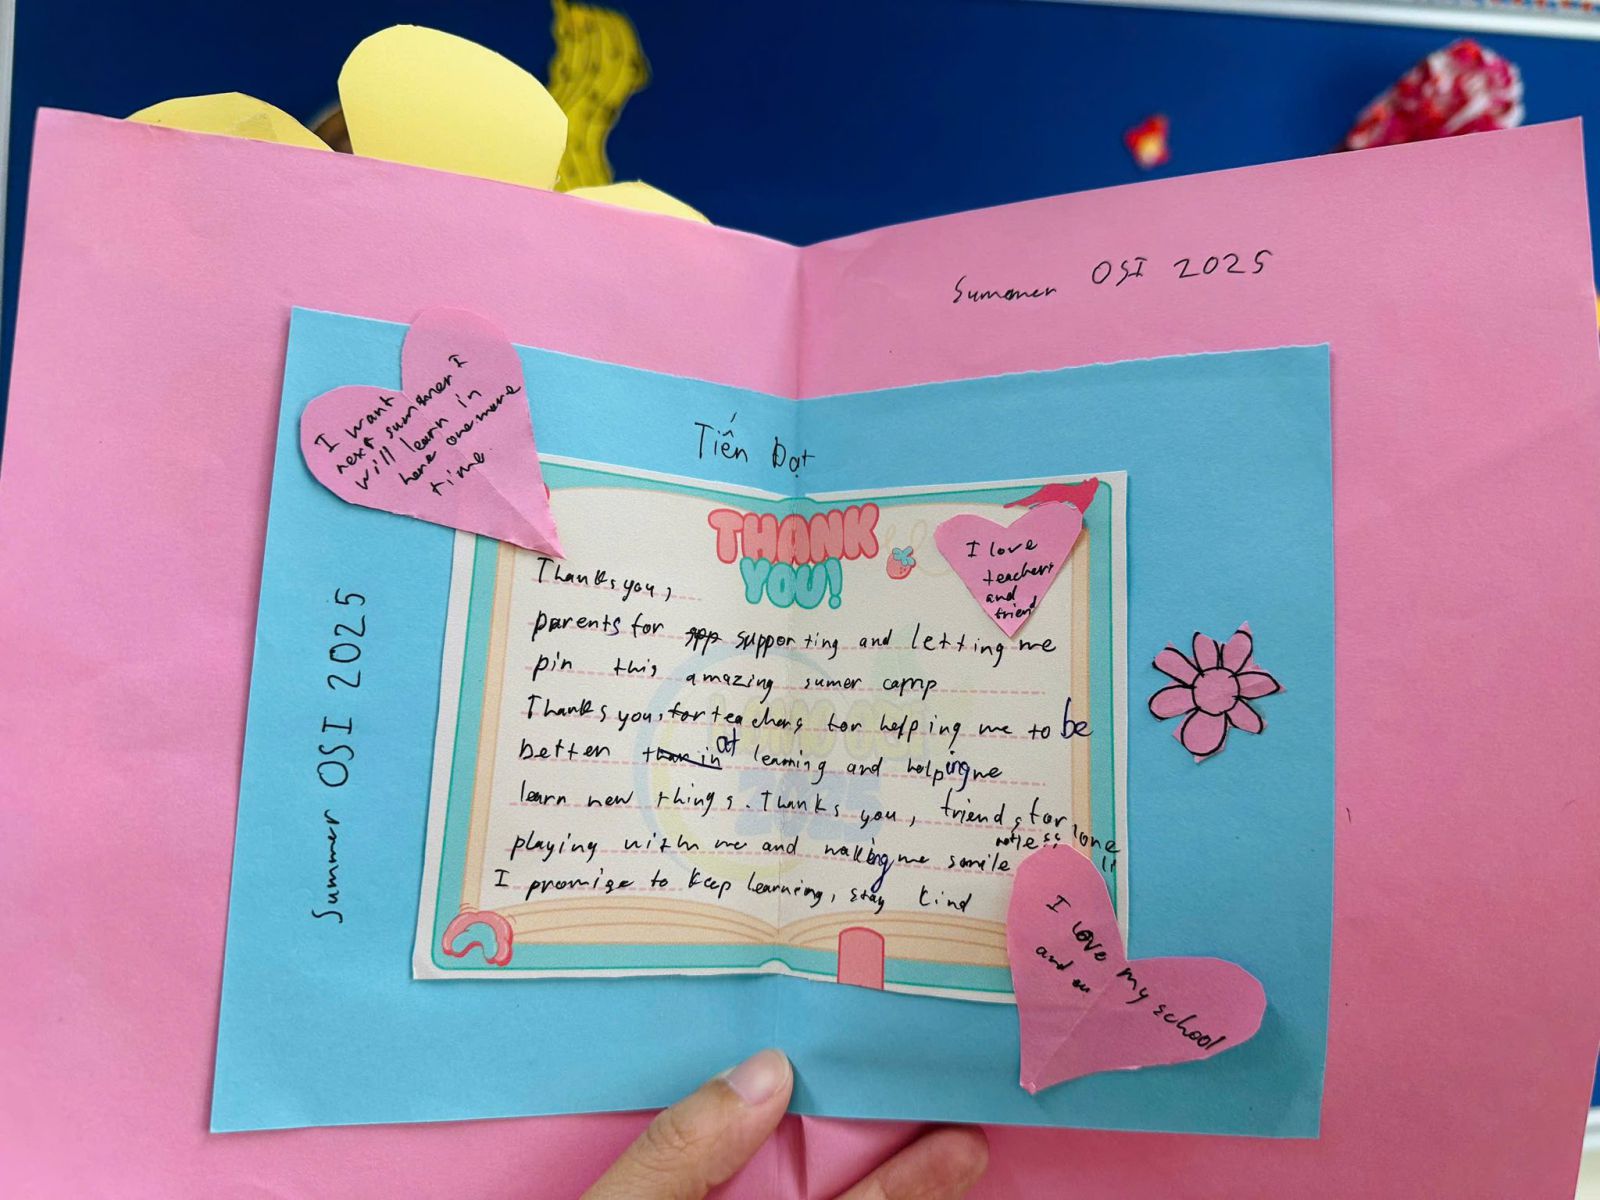 Summer OSI 2025
I want
next summer I
will learn in
here one more
time.
Tiến Đạt
THANK
YOU!
I love
teachers
and
friend
Thanks you,
parents for supporting and letting me
pin this amazing sumer camp
Thanks you, for teachers for helping me to be
better at learning and helping me
learn new things. Thanks you, friends for
playing with me and making me smile
I promise to keep learning, stay kind
Summer OSI 2025
I love my school
and